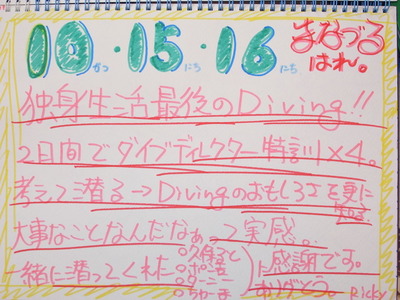 10がつ・15にち・16にち
まなづる
はれ。
独身生活最後のDiving!!
2日間でダイブディレクター特訓1×4。
考えて潜る→Divingのおもしろさを更に
知る
大事なことなんだなぁって実感。
一緒に潜ってくれた
に感謝です。
ありがとう。Ricky